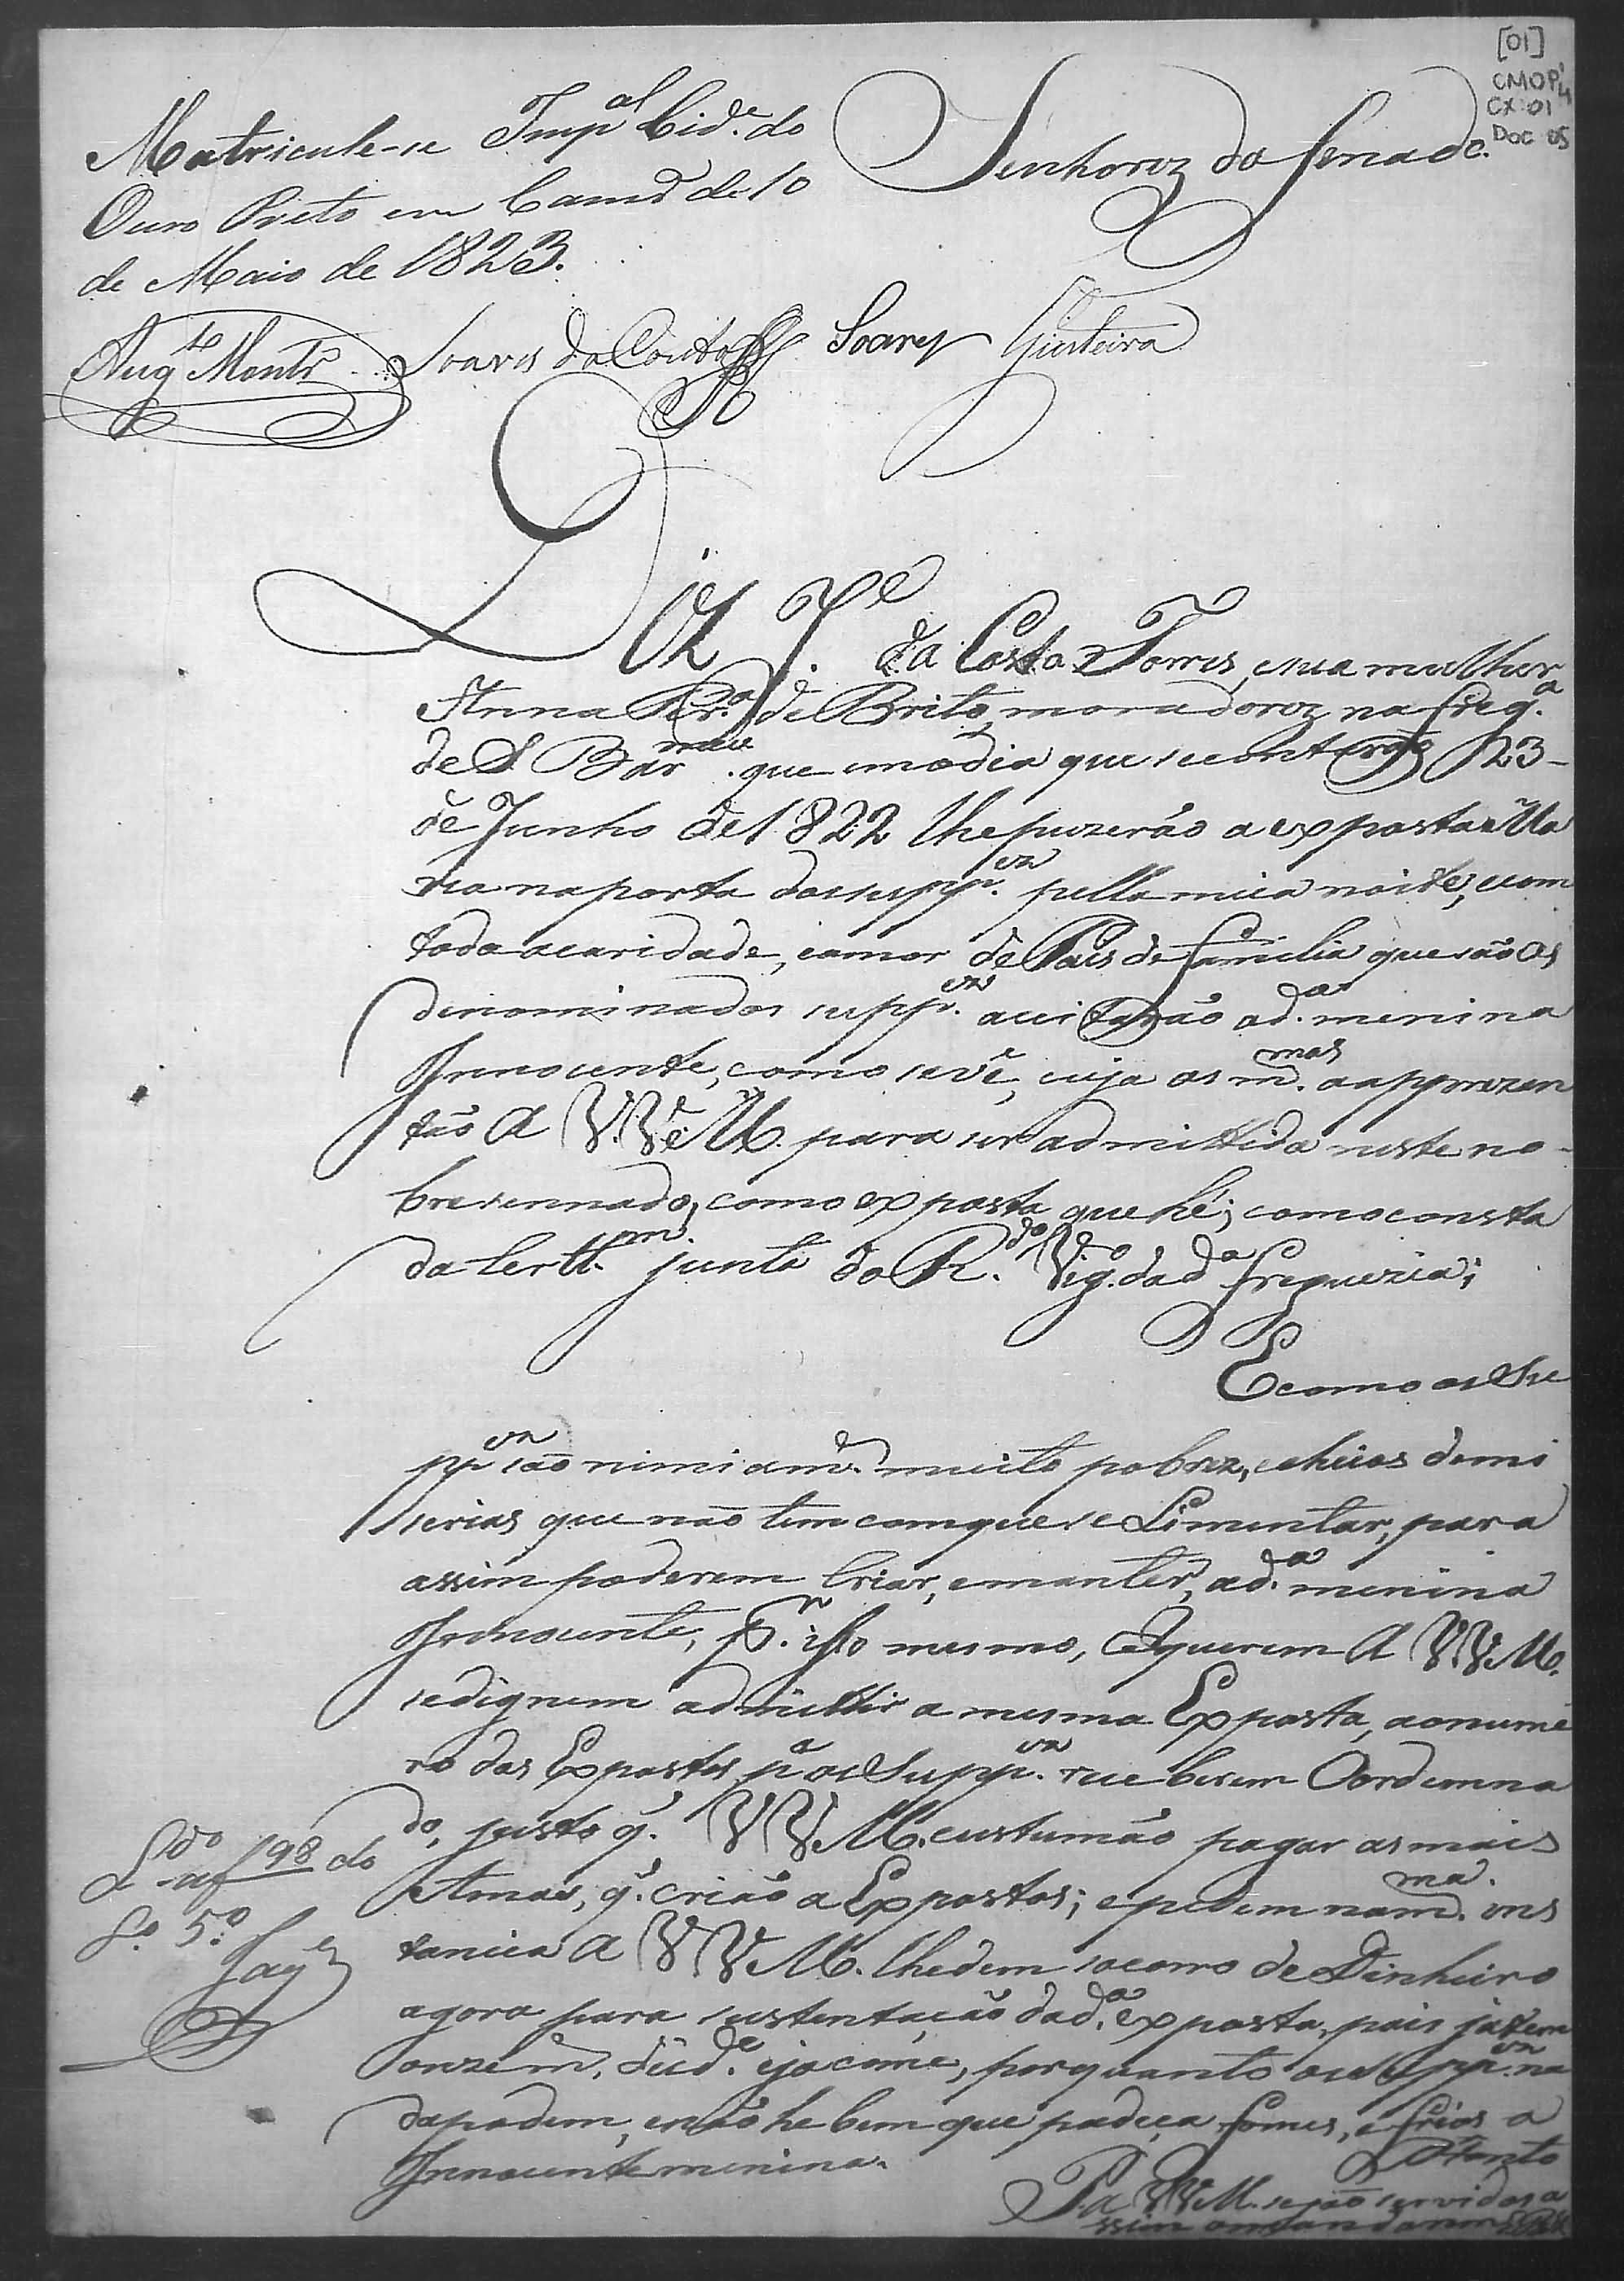 [01]
CMOP
CX 01
Doc 05
Senhorez do Senado.
Matricule-se Imp.al Cid.e do
Ouro Preto em Camr.ª de 10
de Maio de 1823.
Aug.to Montr.º Soares do Couto Soares
Diz J.e da Costa Torres, e sua mulher
Anna Per.ª de Brito, moradorez na Freg.ª
de S. Bar.meu que em o dia que se contarão 23
de Junho de 1822 lhe puzerão a exposta Ma
ria na porta dos supp.ez pella meia noite, e com
toda a caridade, e amor de Pais de familia que são os
denominados supp.ez aceitarão a d.ª menina
Innocente, como se vê, cuja os m.mos a apprezen
tão A VV.eM. para ser admittida neste no-
bre sennado, como exposta que hé; como consta
da Certt.m junta do R.do Vig.o da d.ª Freguezia;
E como os Su
pp.ez são nimiam.e muito pobrez, e cheios de mi
serias que não tem com que se Limentar, para
assim poderem Criar, e manter, a d.ª menina
Innocente, p.r isso mesmo, Requerem A VVM.
se dignem admittir a mesma Exposta, ao nume
ro dos Expostos p.ª os Supp.ez receberem O ordenna
do, justo q.' VVM. custumão pagar as mais
Amas, q.' crião a Expostos; e pedem na m.ma ins
tancia A VVM. lhe dem socorro de Dinheiro
agora para sustentação da d.ª exposta, pois já tem
onze m. de id.e e já come, porquanto os Supp.ez na
da podem, e não he bem que padeça fomes, e frios a
Innocente menina.
L.do af 198 do
L.º 5.º
P. a VVM. sejão servidos a
ssim o mandarem